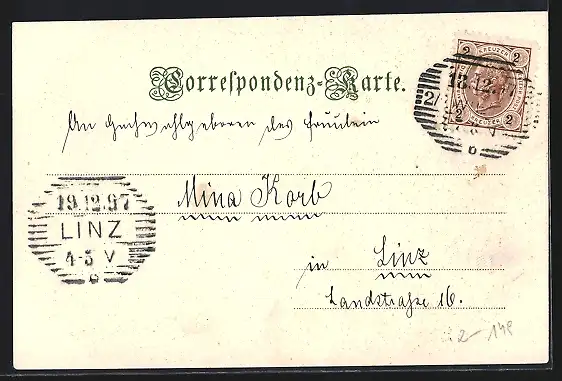 Correspondenz-Karte.
2 KREUZER 2
2 2
18.12.97
2/
An Hochwohlgeboren des Fräulein
Mina Korb
19.12.97
LINZ
4-5 V
6
in Linz
Landstraße 16.
2- 149